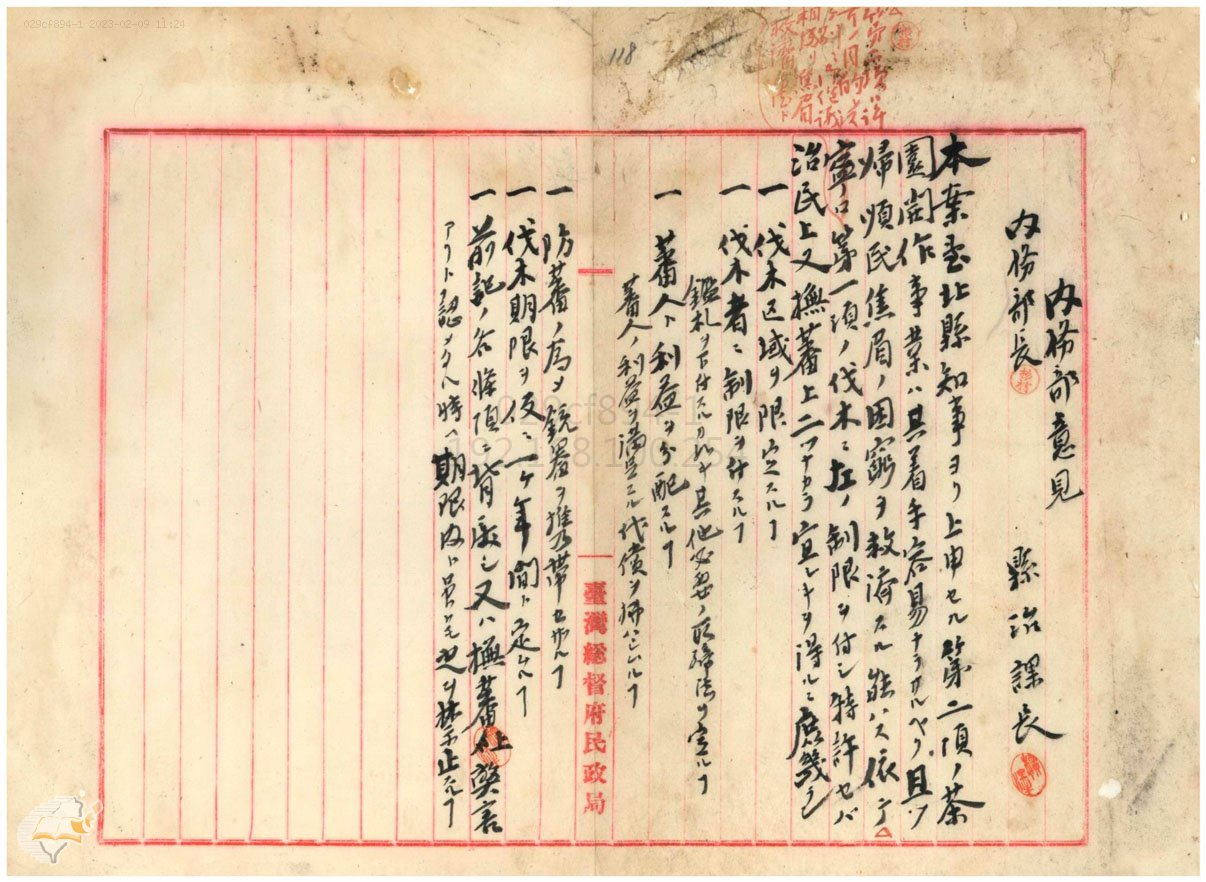 029cf894-1 2023-02-09 11:24
118
内務部意見
縣治課長
内務部長
本案臺北縣知事ヨリ上申セル第二項ノ茶
園開作事業ハ其着手容易ナラサルヘク且ツ
帰順民焦眉ノ困窮ヲ救済スル能ハス依テ
寧ロ第一項ノ伐木ニ左ノ制限ヲ付シ特許セバ
治民上又撫蕃上二ツナカラ宜シキヲ得ルニ庶幾シ
一 伐木区域ヲ限定スルヿ
一 伐木者ニ制限ヲ付スルヿ
鑑札ヲ下付スルカ如キ其他必要ノ取締法ヲ定ルヿ
一 蕃人ト利益ヲ分配スルヿ
蕃人ノ利益ヲ満足スル代償ヲ拂ハシムルヿ
一 防蕃ノ為メ銃器ヲ携帯セサルヿ
一 伐木期限ヲ仮ニ一ヶ年間ト定ムルヿ
一 前記ノ各條項ニ背戻シ又ハ撫蕃上弊害
アリト認メタル時ハ期限内ト雖トモ之ヲ禁止スルヿ
臺灣総督府民政局
029cf894-1
192.168.100.254